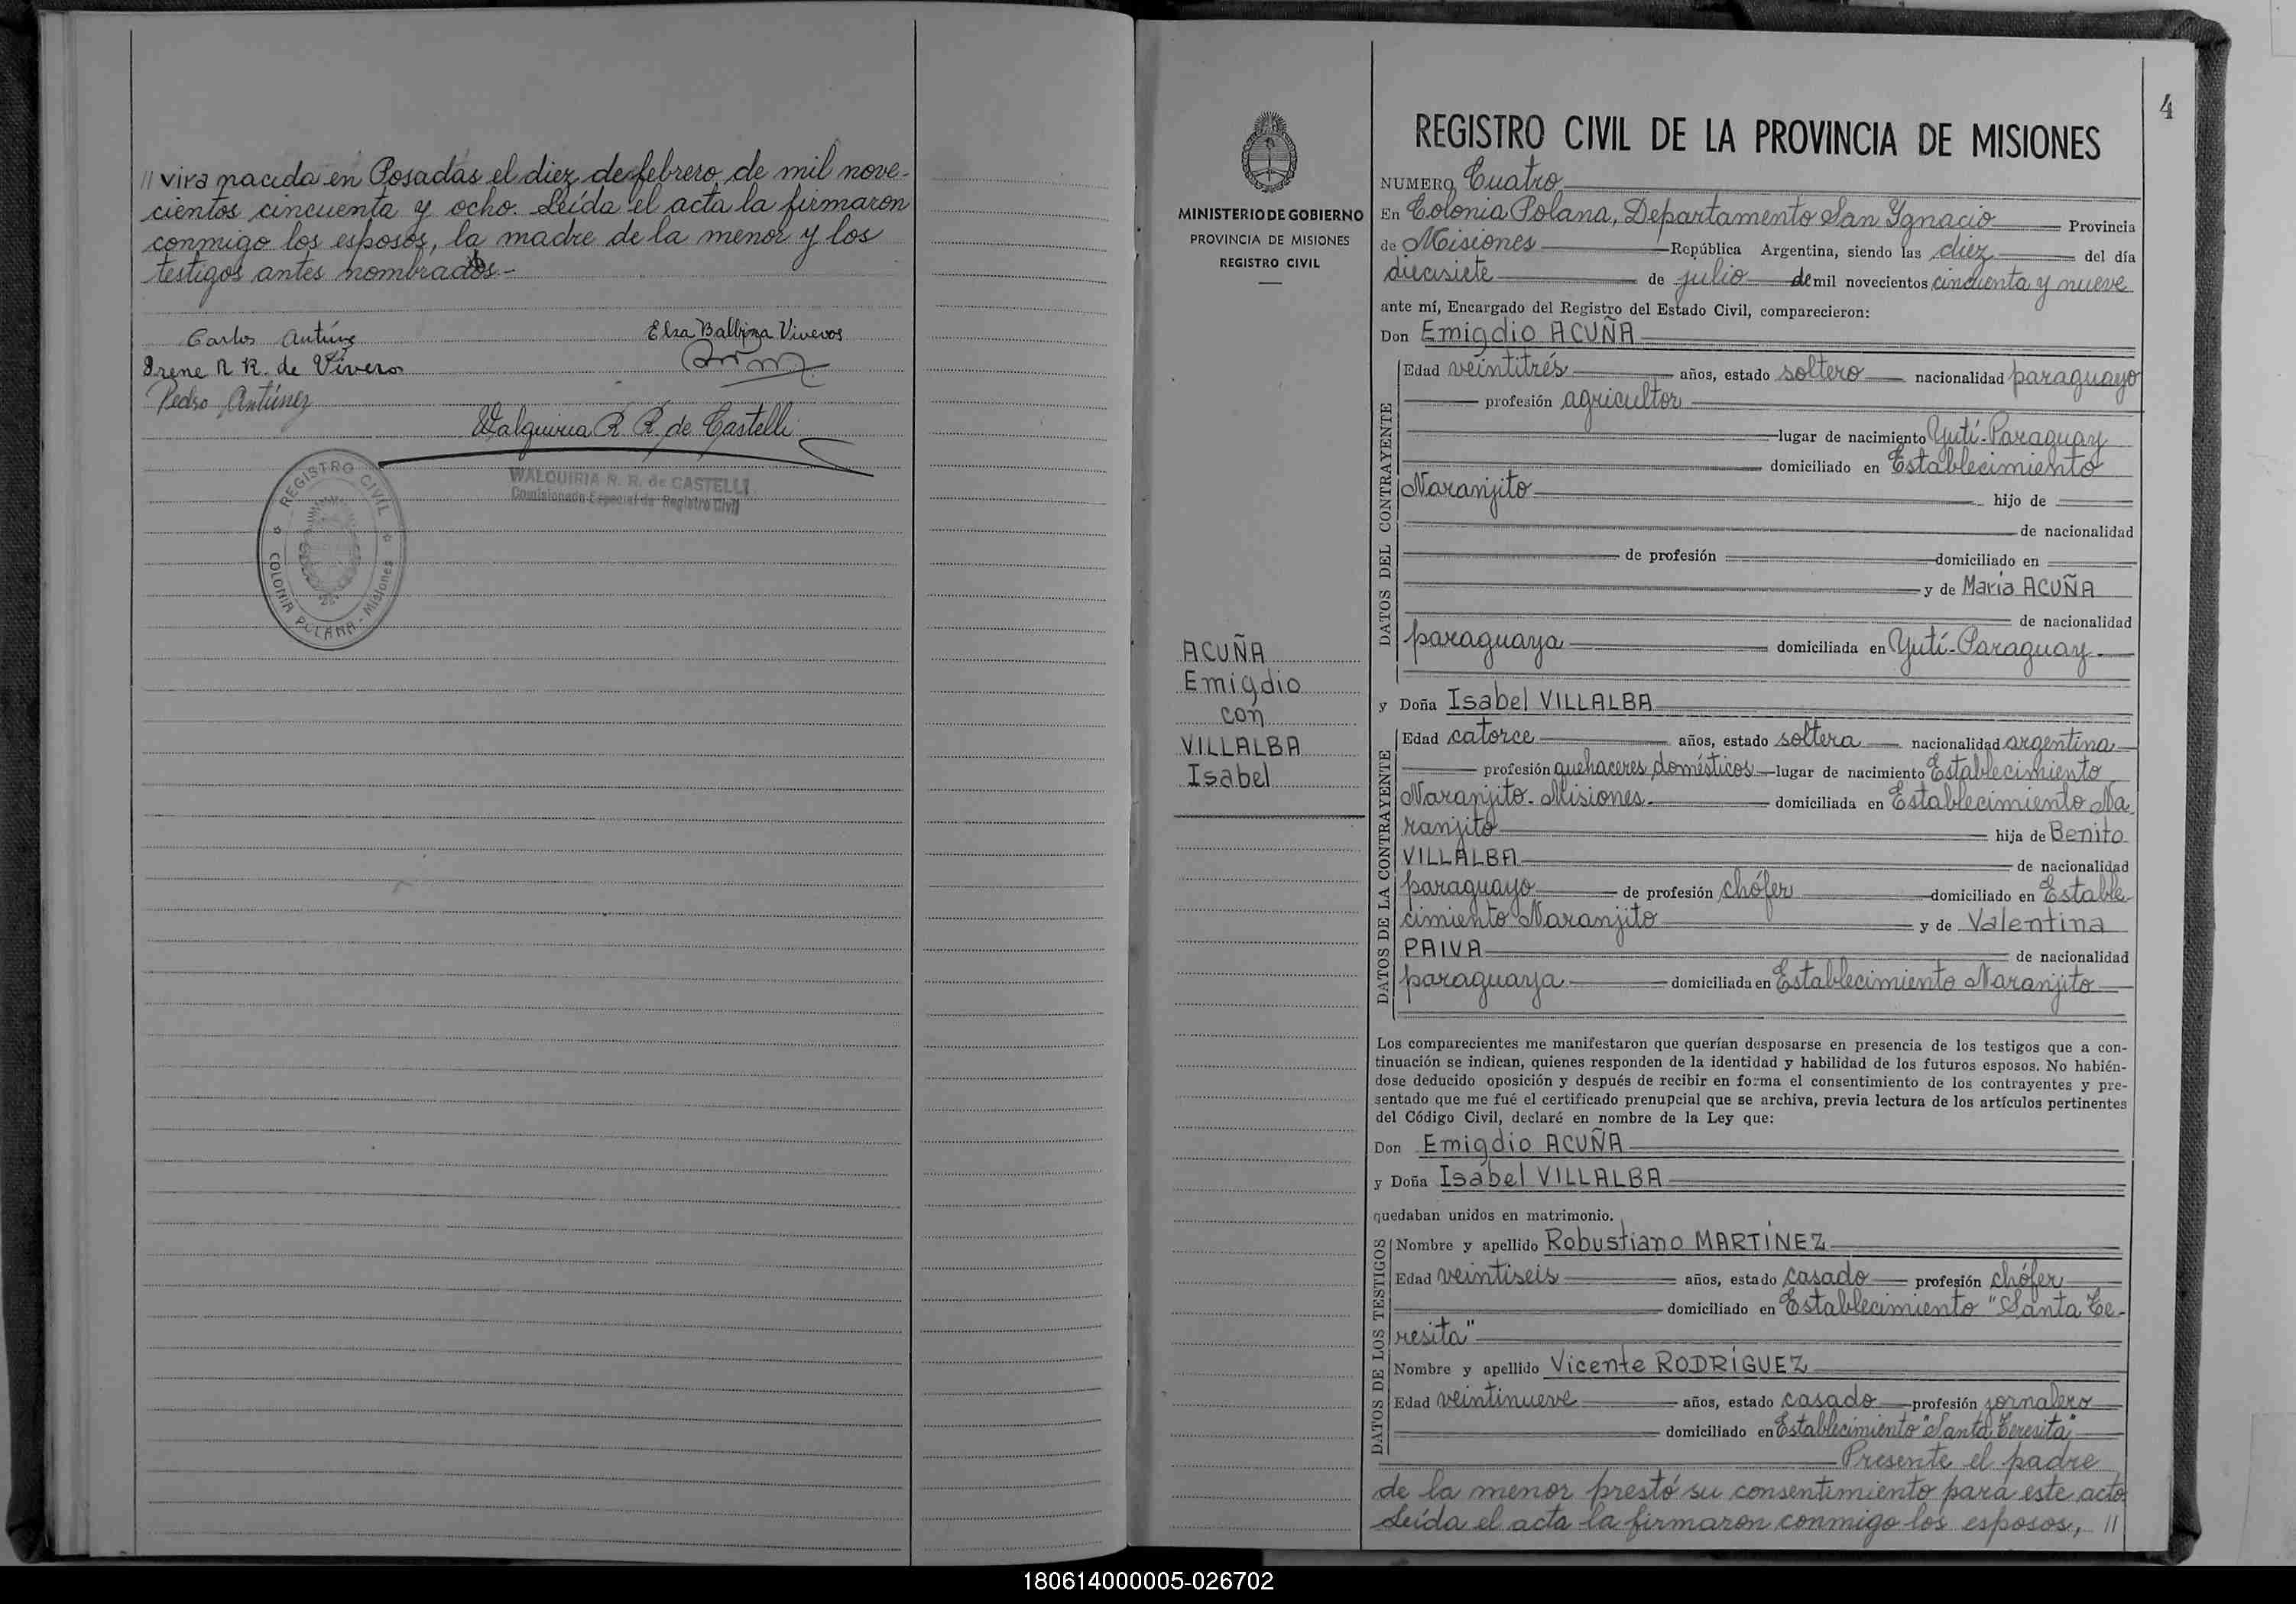 // viva nacida en Posadas el diez de febrero de mil nove-
cientos cincuenta y ocho. Leída el acta la firmaron
conmigo los esposos, la madre de la menor y los
testigos antes nombrados.-
Carlos Antúnez
Elsa Balbina Viveros
Irene R. R. de Vivero
Pedro Antúnez
Walquiria R. R. de Castelli
WALQUIRIA R. R. de CASTELLI
Comisionada Especial de Registro Civil
REGISTRO CIVIL
COLONIA POLANA - Misiones
4
MINISTERIO DE GOBIERNO
PROVINCIA DE MISIONES
REGISTRO CIVIL
ACUÑA
Emigdio
con
VILLALBA
Isabel
REGISTRO CIVIL DE LA PROVINCIA DE MISIONES
NUMERO Cuatro
En Colonia Polana, Departamento San Ygnacio Provincia
de Misiones República Argentina, siendo las diez del día
diecisiete de julio de mil novecientos cincuenta y nueve
ante mí, Encargado del Registro del Estado Civil, comparecieron:
Don Emigdio ACUÑA
DATOS DEL CONTRAYENTE
Edad veintitrés años, estado soltero nacionalidad paraguayo
profesión agricultor
lugar de nacimiento Yutí-Paraguay
domiciliado en Establecimiento
Naranjito hijo de
de nacionalidad
de profesión domiciliado en
y de María ACUÑA
de nacionalidad
paraguaya domiciliada en Yutí-Paraguay.
y Doña Isabel VILLALBA
DATOS DE LA CONTRAYENTE
Edad catorce años, estado soltera nacionalidad argentina
profesión quehaceres domésticos lugar de nacimiento Establecimiento
Naranjito. Misiones. domiciliada en Establecimiento Na-
ranjito hija de Benito
VILLALBA de nacionalidad
paraguayo de profesión chófer domiciliado en Estable-
cimiento Naranjito y de Valentina
PAIVA de nacionalidad
paraguaya domiciliada en Establecimiento Naranjito
Los comparecientes me manifestaron que querían desposarse en presencia de los testigos que a con-
tinuación se indican, quienes responden de la identidad y habilidad de los futuros esposos. No habién-
dose deducido oposición y después de recibir en forma el consentimiento de los contrayentes y pre-
sentado que me fué el certificado prenupcial que se archiva, previa lectura de los artículos pertinentes
del Código Civil, declaré en nombre de la Ley que:
Don Emigdio ACUÑA
y Doña Isabel VILLALBA
quedaban unidos en matrimonio.
DATOS DE LOS TESTIGOS
Nombre y apellido Robustiano MARTÍNEZ
Edad veintiseis años, estado casado profesión chófer
domiciliado en Establecimiento "Santa Te-
resita"
Nombre y apellido Vicente RODRÍGUEZ
Edad veintinueve años, estado casado profesión jornalero
domiciliado en Establecimiento "Santa Teresita"
Presente el padre
de la menor prestó su consentimiento para este acto.
Leída el acta la firmaron conmigo los esposos, //
180614000005-026702